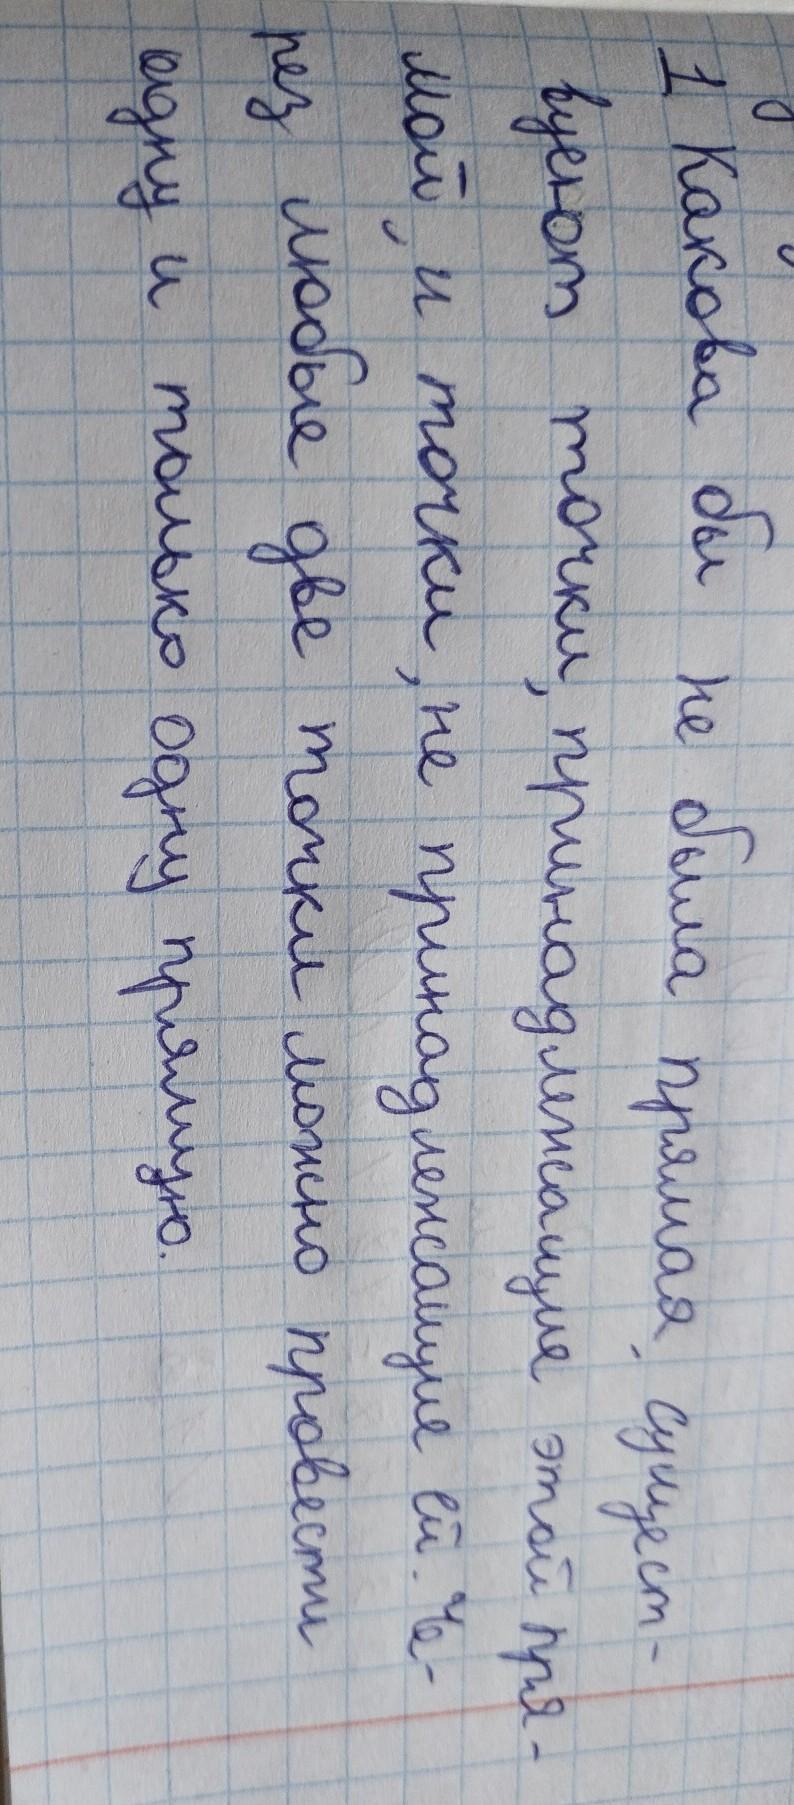 1 Какова бы не была прямая, сущест-
вуют точки, принадлежащие этой пря-
мой, и точки, не принадлежащие ей. Че-
рез любые две точки можно провести
одну и только одну прямую.